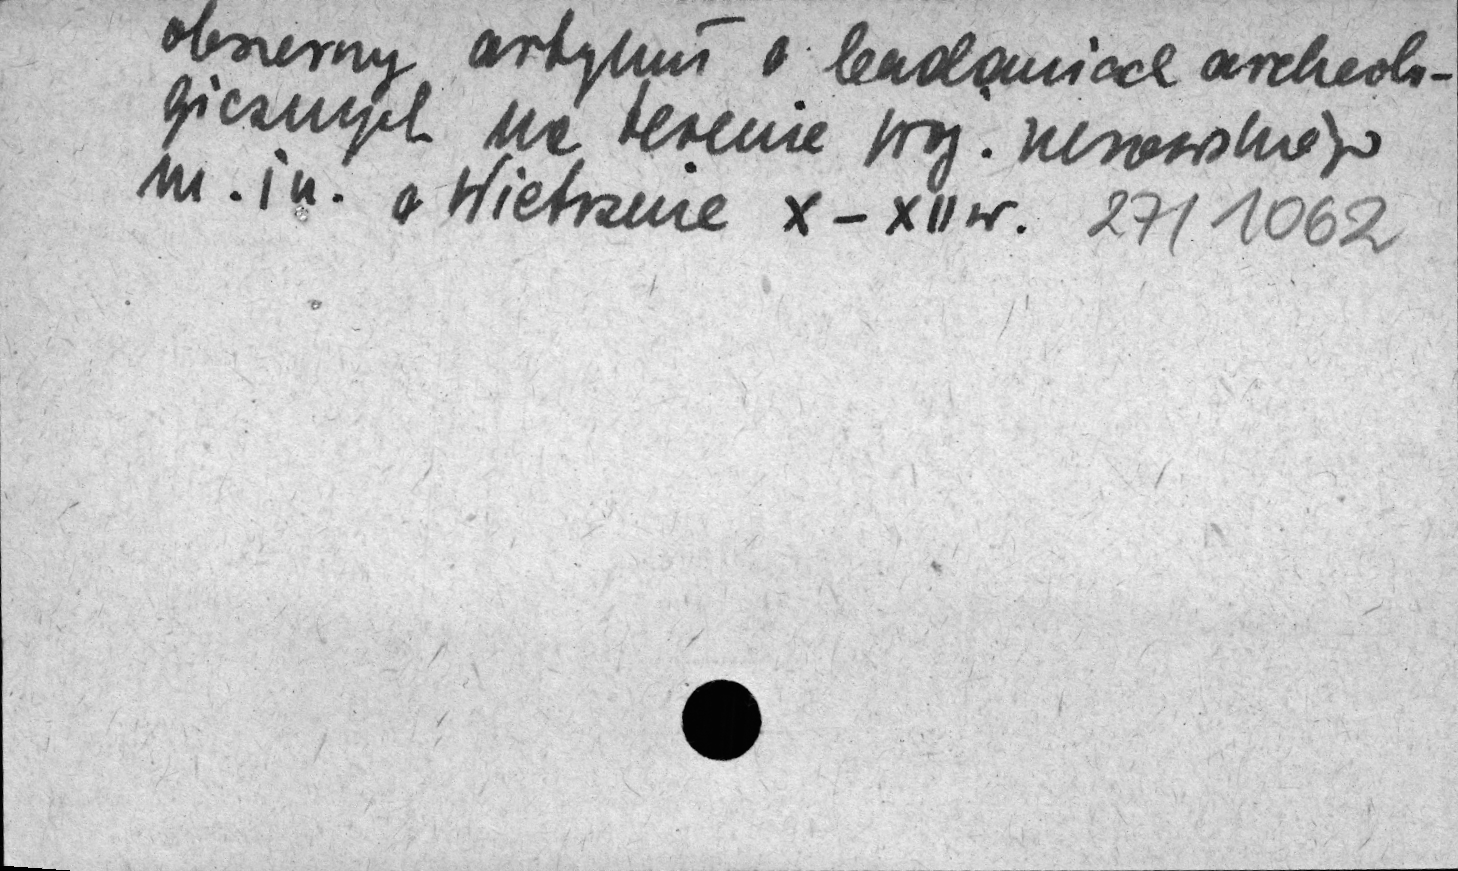 obszerny artykuł o badaniach archeolo-
gicznych na terenie woj. rzeszowskiego
m.in. o Wietrznie X-XII w. 27/1062